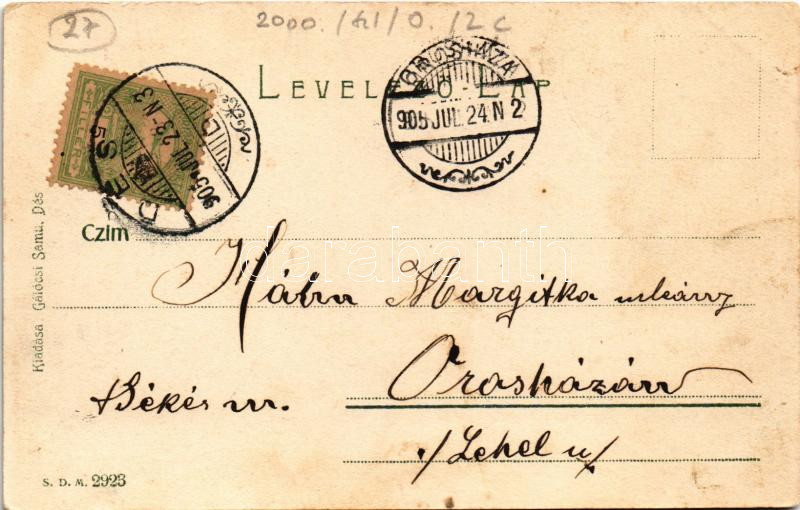 27
2000. /
LEVELEZŐ-LAP
OROSHÁZA
905 JUL. 24. N 2
5 FILLER
DÉS
905 JUL 23 N 3
Czim
Margitka
Orosházán
Békés m.
./Lehel u/
Kiadása Gálócsi Samu, Dés
S. D. M. 2923
darabanth